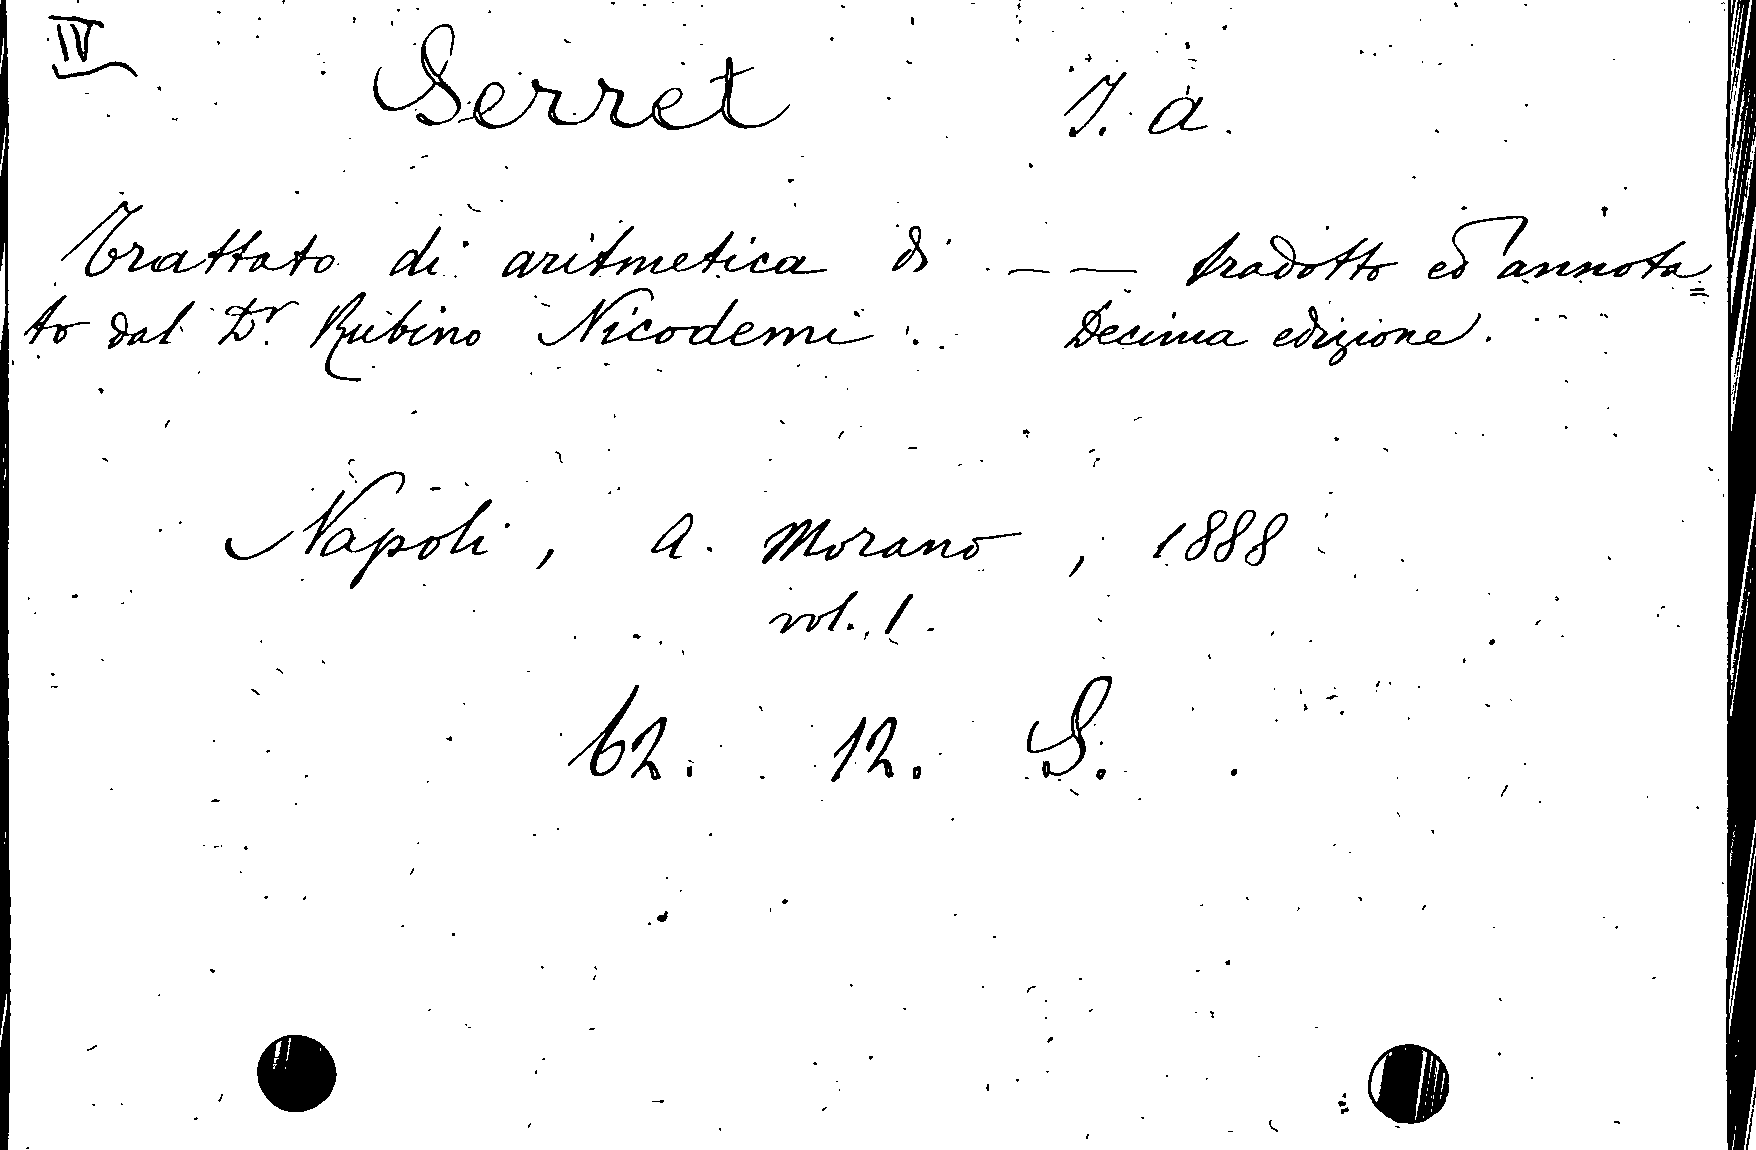 IV
Serret J. A.
Trattato di aritmetica di — — tradotto ed annota=
to dal Dr. Rubino Nicodemi. Decima edizione.
Napoli, A. Morano, 1888
vol. 1.
62. 12. S.